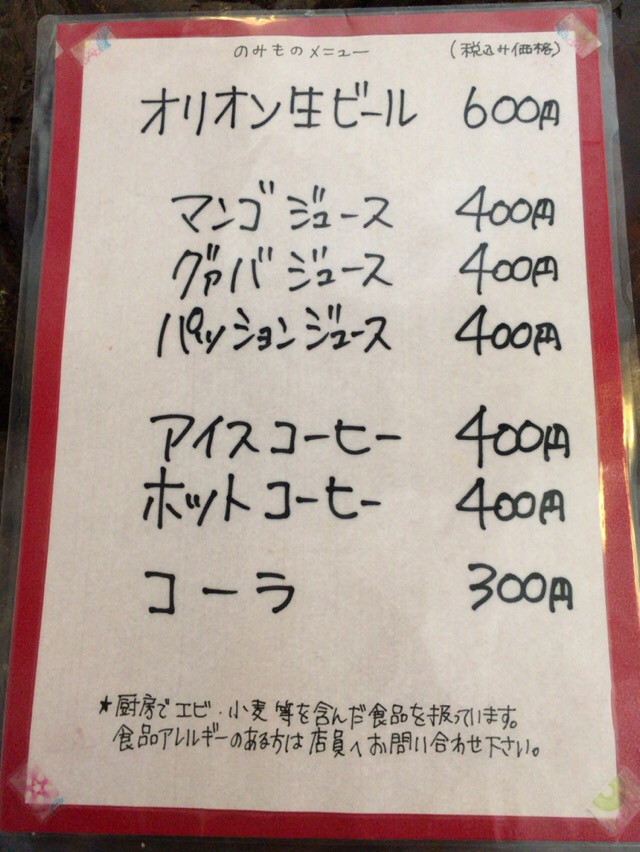 のみものメニュー (税込み価格)
オリオン生ビール 600円
マンゴジュース 400円
グァバジュース 400円
パッションジュース 400円
アイスコーヒー 400円
ホットコーヒー 400円
コーラ 300円
*厨房でエビ・小麦等を含んだ食品を扱っています。
食品アレルギーのある方は店員へお問い合わせ下さい。